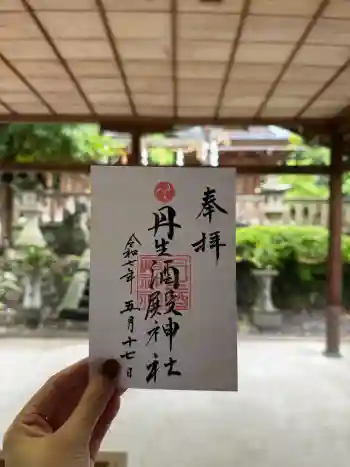 奉拝
丹生酒殿神社
令和七年五月十七日